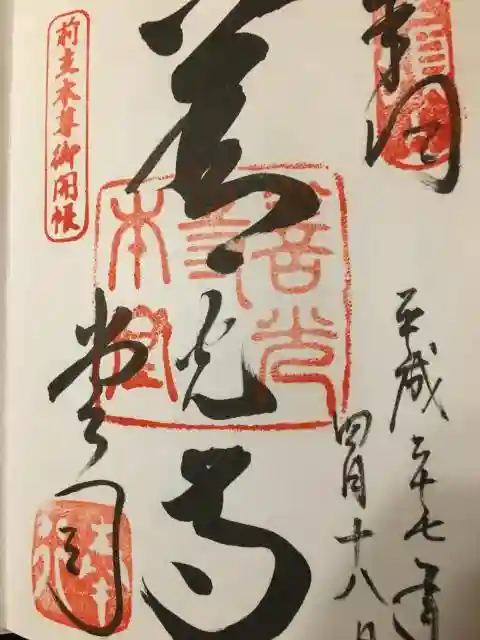 奉拝
平成二十七年
四月十八日
善光寺
善光寺本堂
堂司
前立本尊御開帳